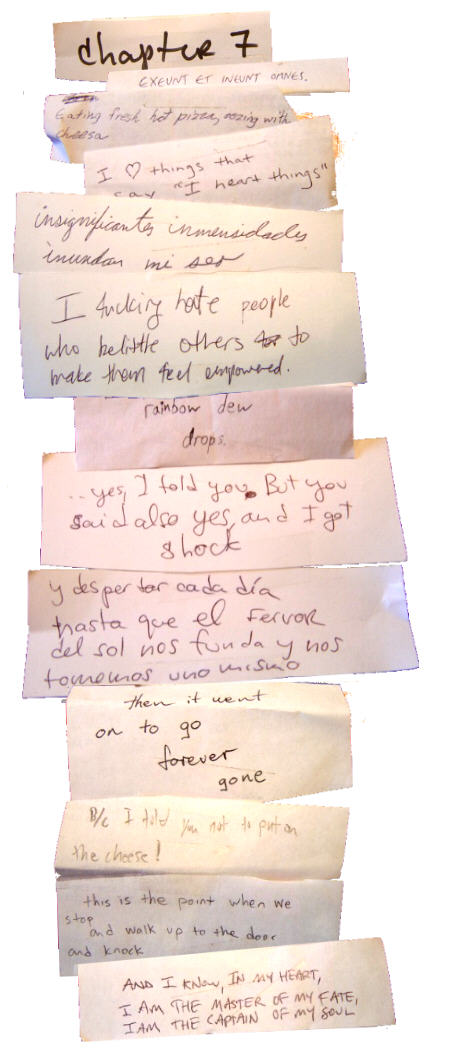 chapter 7
EXEUNT ET INEUNT OMNES.
Eating fresh hot pizza, oozing with
cheesa
I ♡ things that
say "I heart things"
insignificantes inmensidades
inundan mi ser
I fucking hate people
who belittle others to
make them feel empowered.
rainbow dew
drops.
..yes, I told you. But you
said also yes, and I got
shock
y despertar cada día
hasta que el FERVOR
del sol nos funda y nos
tomemos uno mismo
then it went
on to go
forever
gone
B/c I told you not to put on
the cheese!
this is the point when we
stop
and walk up to the door
and knock
AND I KNOW, IN MY HEART,
I AM THE MASTER OF MY FATE,
I AM THE CAPTAIN OF MY SOUL